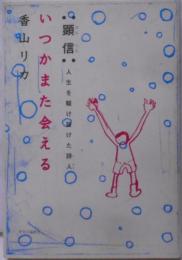 いつかまた会える
顕信
人生を駆け抜けた詩人
香山リカ